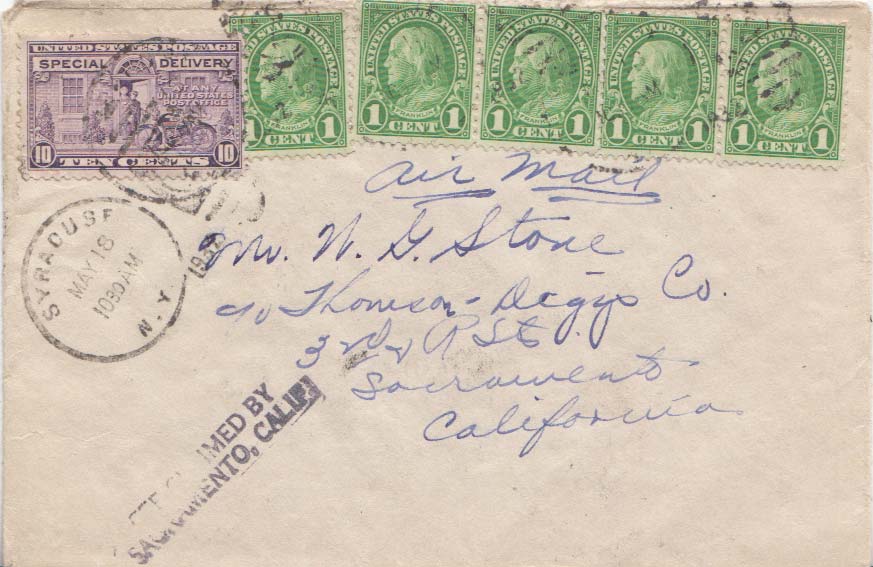 UNITED STATES POSTAGE
SPECIAL DELIVERY
AT ANY
UNITED STATES
POST OFFICE
10 TEN CENTS 10
UNITED STATES POSTAGE
1 CENT 1
FRANKLIN
UNITED STATES POSTAGE
FRANKLIN
1 CENT 1
UNITED STATES POSTAGE
FRANKLIN
1 CENT 1
UNITED STATES POSTAGE
FRANKLIN
1 CENT 1
UNITED STATES POSTAGE
FRANKLIN
1 CENT 1
Air Mail
SYRACUSE
MAY 18
1030 AM
N.Y.
1932
Mr. W. G. Stone
c/o Thomson-Diggs Co.
3rd & R St.
Sacramento
California
CLAIMED BY
SACRAMENTO, CALIF.